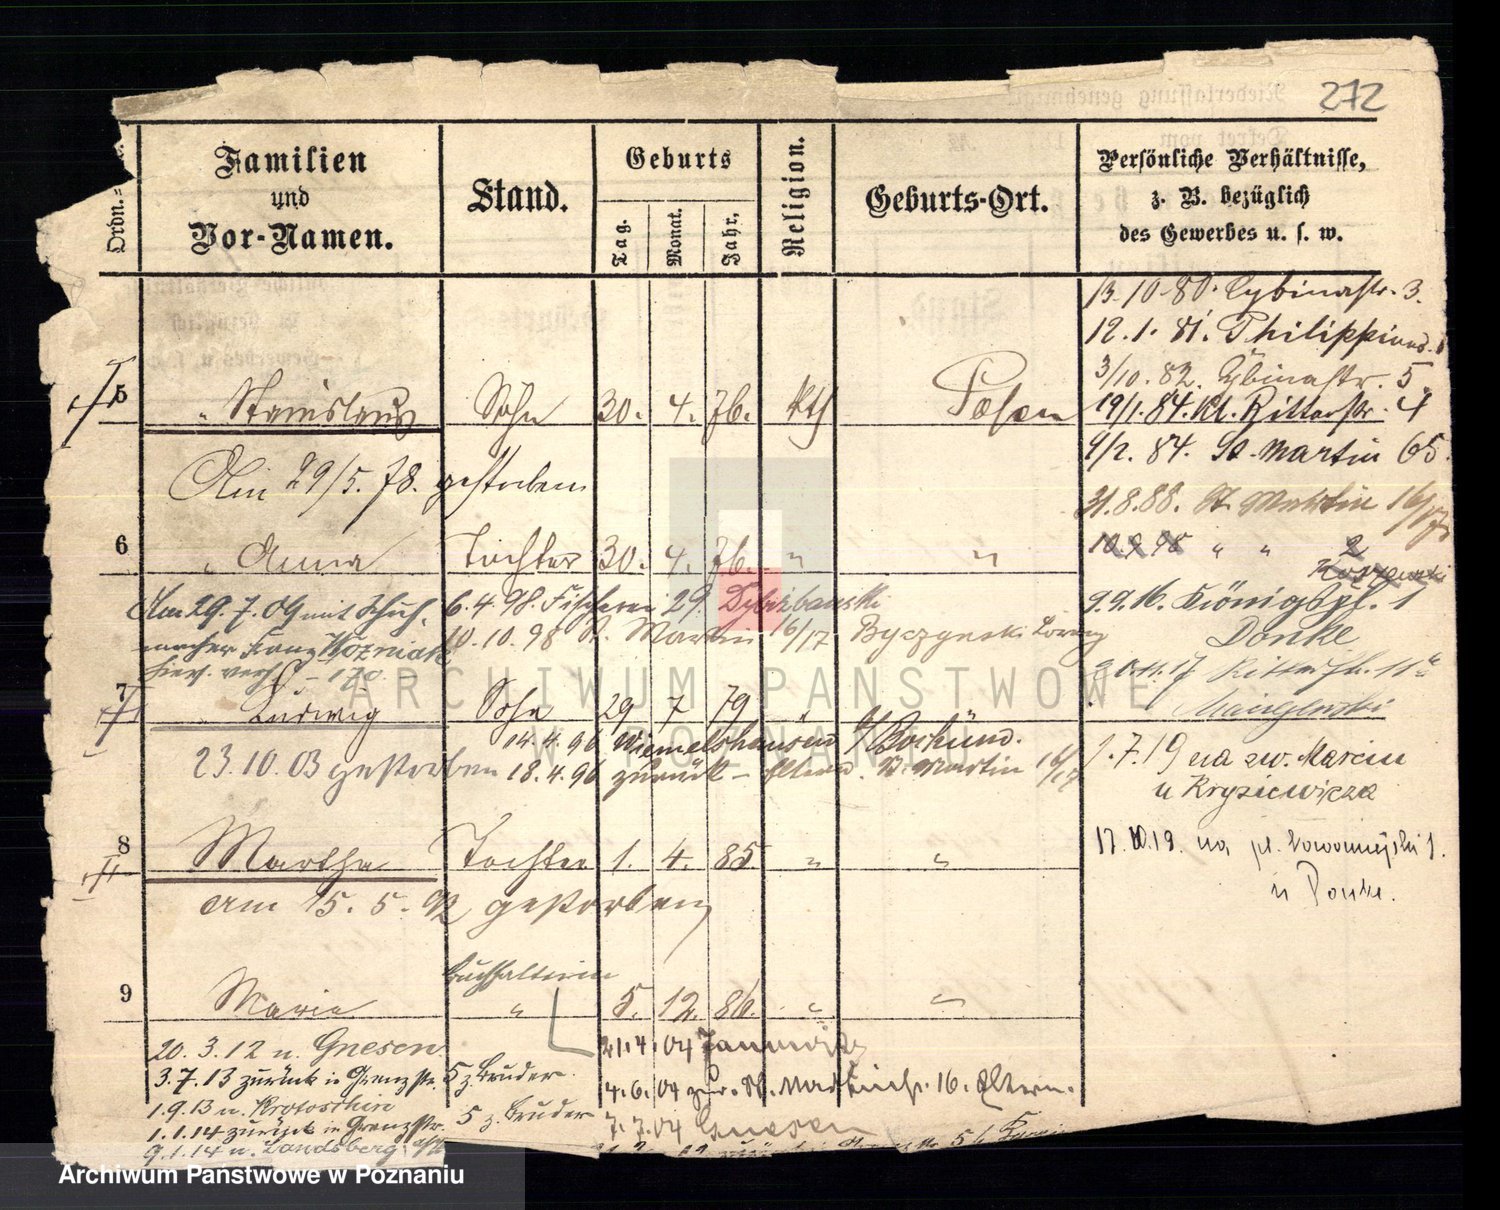 272
Ordn.=
Familien
und
Vor-Namen.
Stand.
Geburts
Tag.
Monat.
Jahr.
Religion.
Geburts-Ort.
Persönliche Verhältnisse,
z. B. bezüglich
des Gewerbes u. s. w.
13.10.80. Cybinastr. 3.
12.1.81. Philippi
3/10.82. Cybinastr. 5.
19/1.84. Kl. Ritterstr. 4
9/2. 84. St. Martin 65.
31.8.88. St. Martin 16/17
10.9.98 " " 2
5 " Stanislaus Sohn 30. 4. 76. kth Posen
Am 29/5. 78. gestorben
6 " Anna Tochter 30. 4. 76. " "
Am 29.7.09 mit Schuh-
macher Franz Wozniak
hier verh.
6.4.98. Fischerei 29.
10.10.98 St. Martin 16/17 Byczynski
9.9.16. Königspl. 1
Donke
20.11.17 Ritterstr. 11a
7 " Ludwig Sohn 29 7 79 "
14.4.96 Wiemelshausen b/Bochum.
23.10.03 gestorben 18.4.96 zurück – Eltern. St. Martin 16/17
1.7.19 na św. Marcin
u Krysiewicza
8 Martha Tochter 1. 4. 85 " "
am 15.5.92 gestorben
17.10.19. na pl. Nowomiejski 1.
u Donke.
9 Marie Buchhalterin " 5. 12. 86. " "
20.3.12 n. Gnesen
3.7.13 zurück in Grenzstr. 5 z. Bruder.
1.9.13 n. Krotoschin
1.1.14 zurück in Grenzstr. 5 z. Bruder
9.1.14 n. Landsberg
21.4.04 Janowitz
4.6.04 zur. St. Martinstr. 16. Eltern.
7.7.04 Gnesen
ARCHIWUM PAŃSTWOWE
W POZNANIU
Archiwum Państwowe w Poznaniu